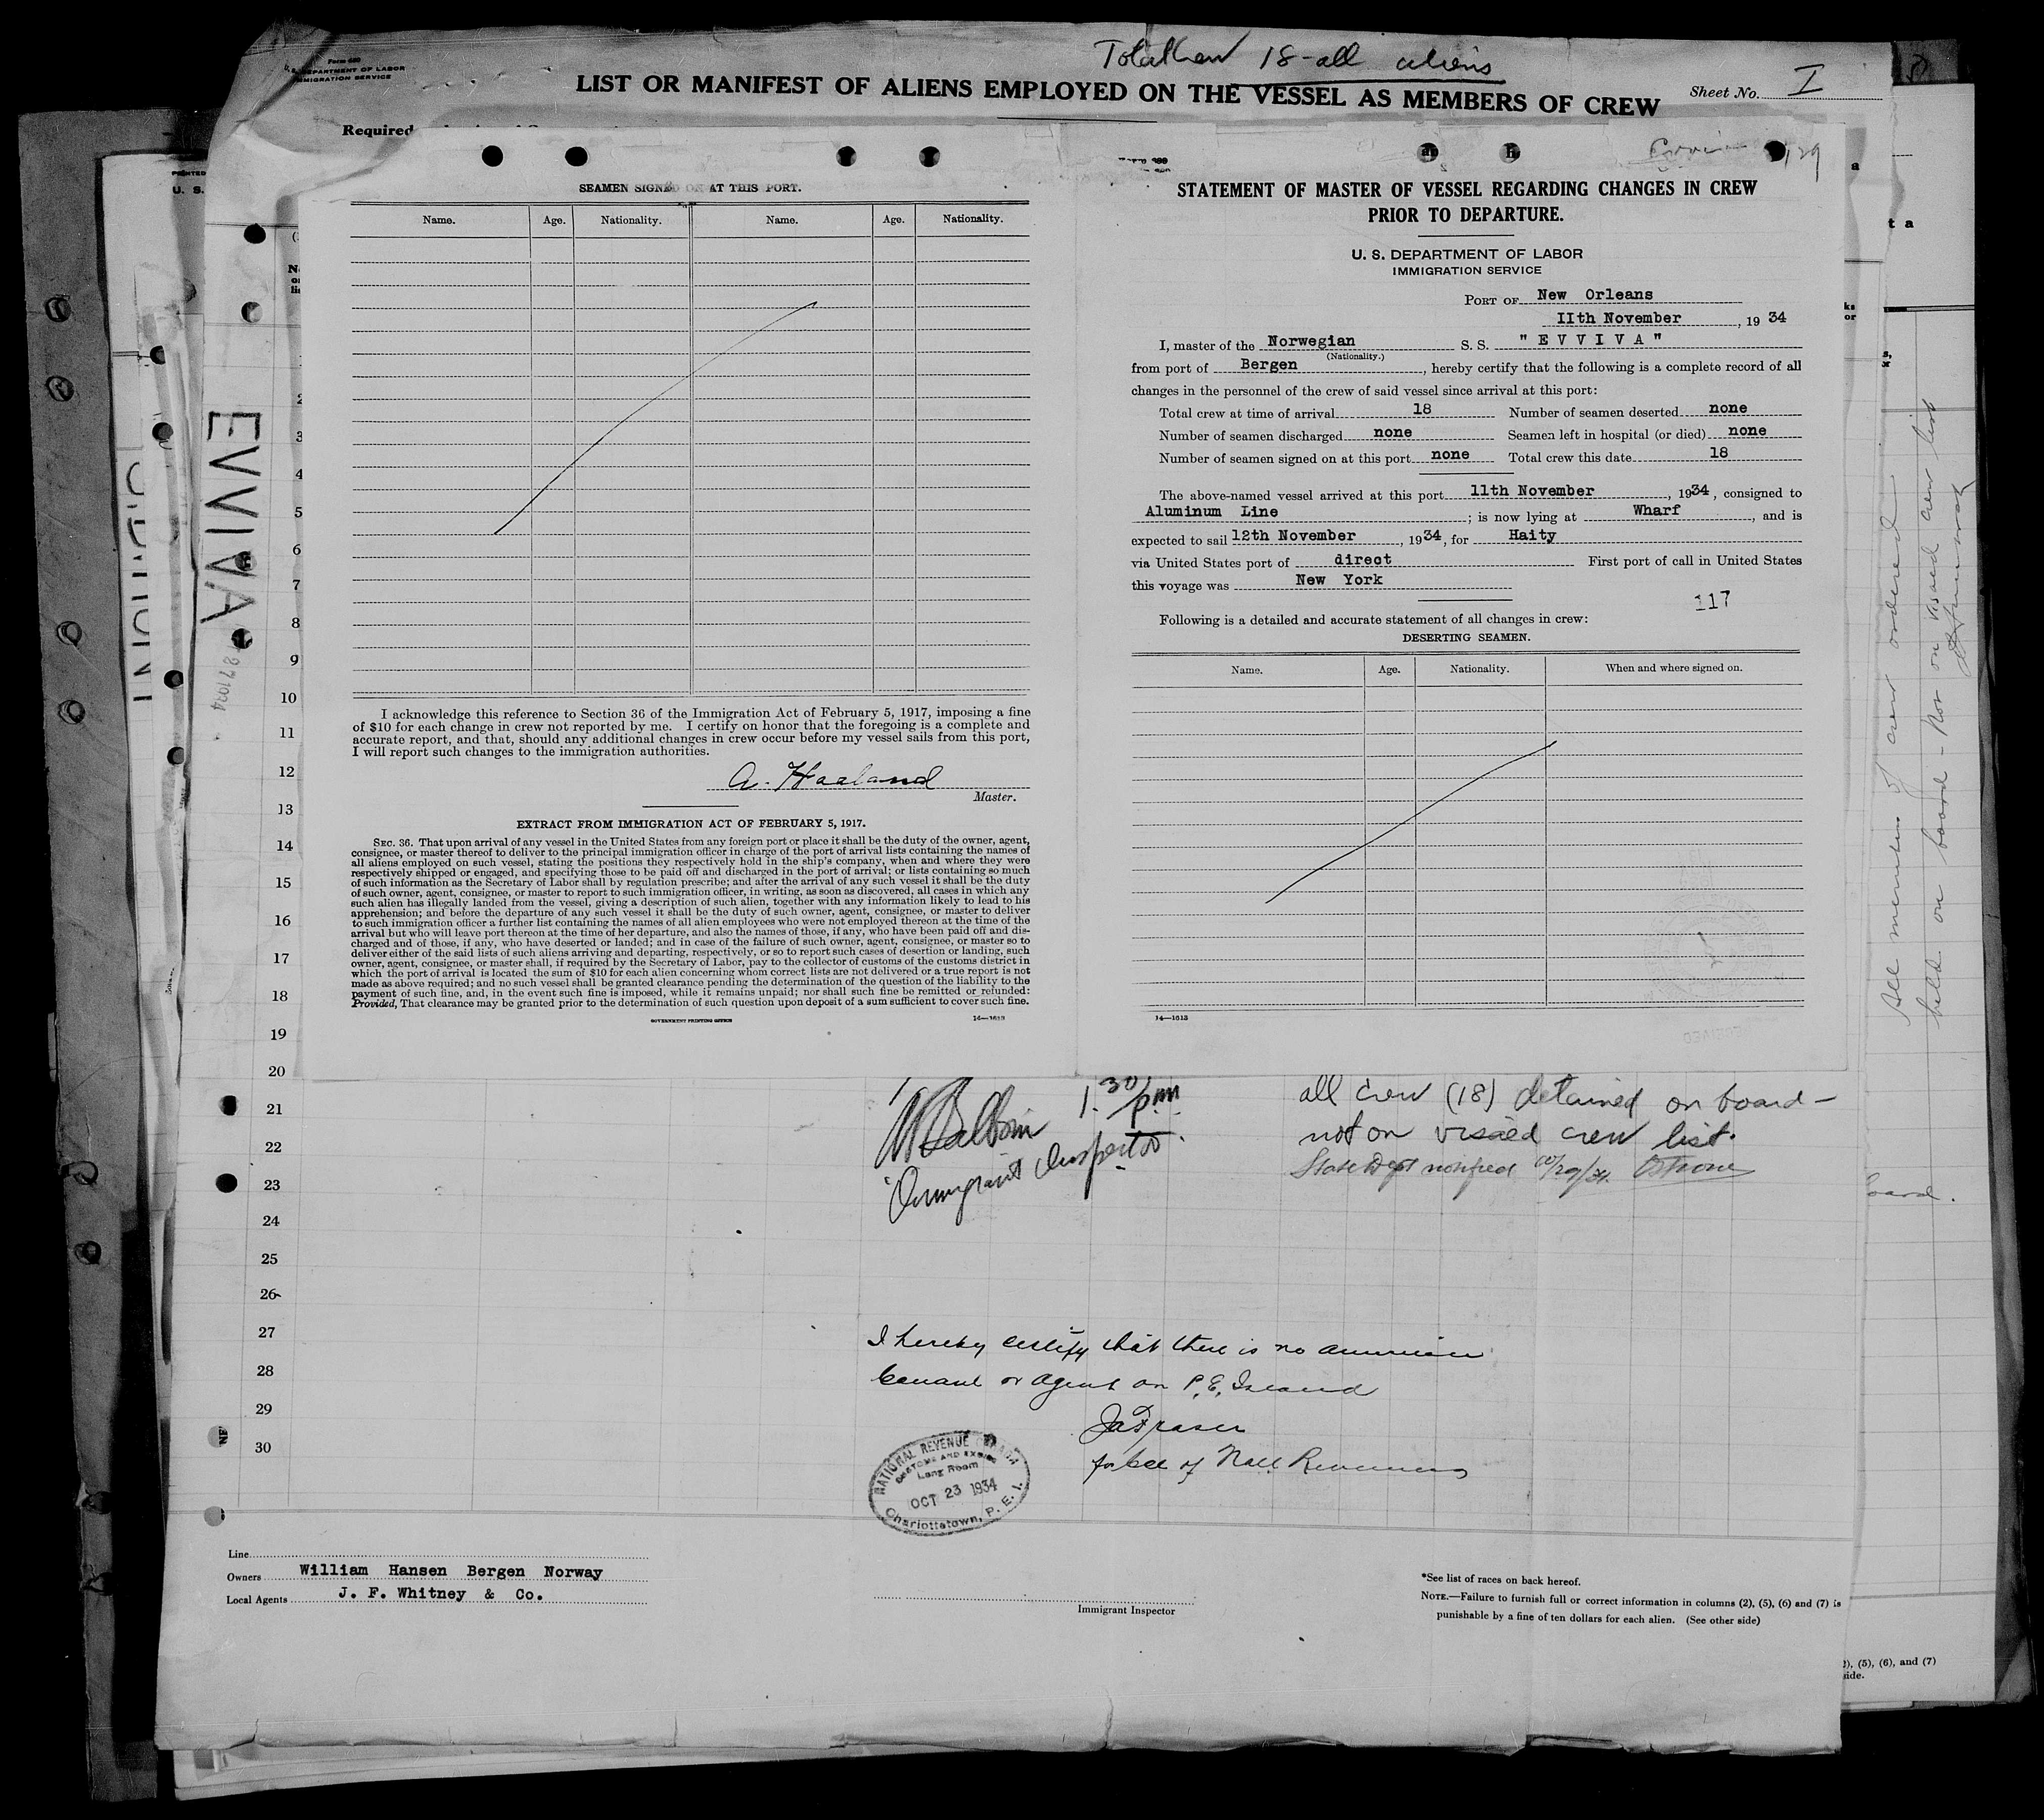 Total crew 18 - all aliens
Form 680
U. S. DEPARTMENT OF LABOR
IMMIGRATION SERVICE
LIST OR MANIFEST OF ALIENS EMPLOYED ON THE VESSEL AS MEMBERS OF CREW
Sheet No. I
Required
EVVIVA
1
2
3
4
5
6
7
8
9
10
11
12
13
14
15
16
17
18
19
20
21
22
23
24
25
26
27
28
29
30
SEAMEN SIGNED ON AT THIS PORT.
Name. Age. Nationality. Name. Age. Nationality.
I acknowledge this reference to Section 36 of the Immigration Act of February 5, 1917, imposing a fine
of $10 for each change in crew not reported by me. I certify on honor that the foregoing is a complete and
accurate report, and that, should any additional changes in crew occur before my vessel sails from this port,
I will report such changes to the immigration authorities.
A. Haaland
Master.
EXTRACT FROM IMMIGRATION ACT OF FEBRUARY 5, 1917.
SEC. 36. That upon arrival of any vessel in the United States from any foreign port or place it shall be the duty of the owner, agent,
consignee, or master thereof to deliver to the principal immigration officer in charge of the port of arrival lists containing the names of
all aliens employed on such vessel, stating the positions they respectively hold in the ship's company, when and where they were
respectively shipped or engaged, and specifying those to be paid off and discharged in the port of arrival; or lists containing so much
of such information as the Secretary of Labor shall by regulation prescribe; and after the arrival of any such vessel it shall be the duty
of such owner, agent, consignee, or master to report to such immigration officer, in writing, as soon as discovered, all cases in which any
such alien has illegally landed from the vessel, giving a description of such alien, together with any information likely to lead to his
apprehension; and before the departure of any such vessel it shall be the duty of such owner, agent, consignee, or master to deliver
to such immigration officer a further list containing the names of all alien employees who were not employed thereon at the time of the
arrival but who will leave port thereon at the time of her departure, and also the names of those, if any, who have been paid off and dis-
charged and of those, if any, who have deserted or landed; and in case of the failure of such owner, agent, consignee, or master so to
deliver either of the said lists of such aliens arriving and departing, respectively, or so to report such cases of desertion or landing, such
owner, agent, consignee, or master shall, if required by the Secretary of Labor, pay to the collector of customs of the customs district in
which the port of arrival is located the sum of $10 for each alien concerning whom correct lists are not delivered or a true report is not
made as above required; and no such vessel shall be granted clearance pending the determination of the question of the liability to the
payment of such fine, and, in the event such fine is imposed, while it remains unpaid; nor shall such fine be remitted or refunded:
Provided, That clearance may be granted prior to the determination of such question upon deposit of a sum sufficient to cover such fine.
GOVERNMENT PRINTING OFFICE 14—1613
STATEMENT OF MASTER OF VESSEL REGARDING CHANGES IN CREW
PRIOR TO DEPARTURE.
U. S. DEPARTMENT OF LABOR
IMMIGRATION SERVICE
PORT OF New Orleans
11th November, 1934
I, master of the Norwegian S. S. "EVVIVA"
(Nationality.)
from port of Bergen, hereby certify that the following is a complete record of all
changes in the personnel of the crew of said vessel since arrival at this port:
Total crew at time of arrival 18 Number of seamen deserted none
Number of seamen discharged none Seamen left in hospital (or died) none
Number of seamen signed on at this port none Total crew this date 18
The above-named vessel arrived at this port 11th November, 1934, consigned to
Aluminum Line; is now lying at Wharf, and is
expected to sail 12th November, 1934, for Haity
via United States port of direct First port of call in United States
this voyage was New York
117
Following is a detailed and accurate statement of all changes in crew:
DESERTING SEAMEN.
Name. Age. Nationality. When and where signed on.
14—1613
All members of crew ordered
held on board - Not on visaed crew list
1.30 p.m.
Immigrant Inspector
all crew (18) detained on board -
not on visaed crew list.
State Dept notified
I hereby certify that there is no American
Consul or Agent on P. E. Island
Fraser
for Coll of Natl Revenue
NATIONAL REVENUE CANADA
CUSTOMS AND EXCISE
Long Room
OCT 23 1934
Charlottetown, P. E. I.
Line
Owners William Hansen Bergen Norway
Local Agents J. F. Whitney & Co.
Immigrant Inspector
*See list of races on back hereof.
NOTE.—Failure to furnish full or correct information in columns (2), (5), (6) and (7) is
punishable by a fine of ten dollars for each alien. (See other side)
(5), (6), and (7)